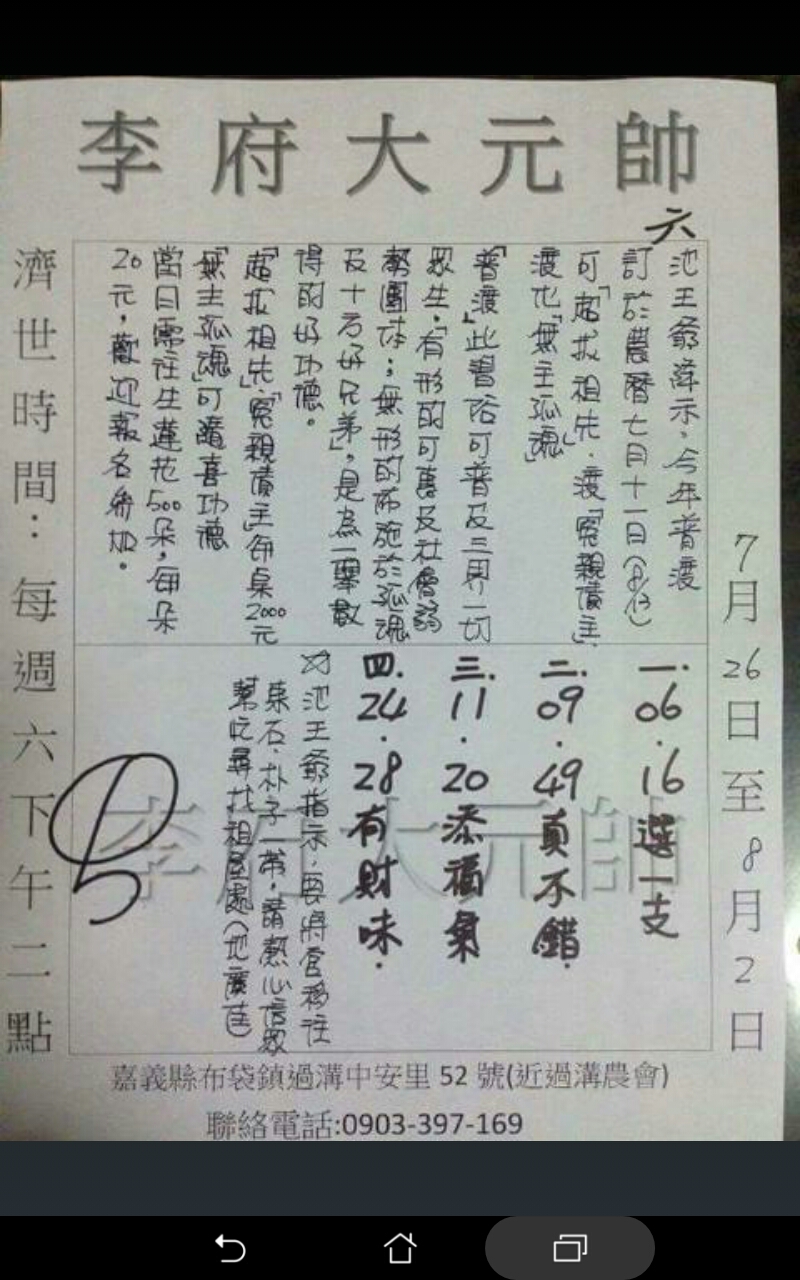 李府大元帥
7月26日至8月2日
六
池王爺降示，今年普渡
訂於農曆七月十一日(8/13)
可「超拔祖先」、渡「冤親債主」、
渡化「無主孤魂」
「普渡」此習俗可普及三界一切
眾生，「有形的可惠及社會弱
勢團体；無形的佈施於孤魂
及十方好兄弟」，是為一舉數
得的好功德。
「超拔祖先」、「冤親債主」每桌2000元
「無主孤魂」可隨喜功德
當日需往生蓮花500朵，每朵
20元，歡迎報名參加。
一.06.16選一支
二.09.49真不錯.
三.11.20添福氣
四.24.28有財味.
池王爺指示，要將宮移往
東石、朴子一帶，請熱心信眾
幫忙尋找祖厝處(地廣佳)
李府大元帥
濟世時間：每週六下午二點
嘉義縣布袋鎮過溝中安里52號(近過溝農會)
聯絡電話:0903-397-169